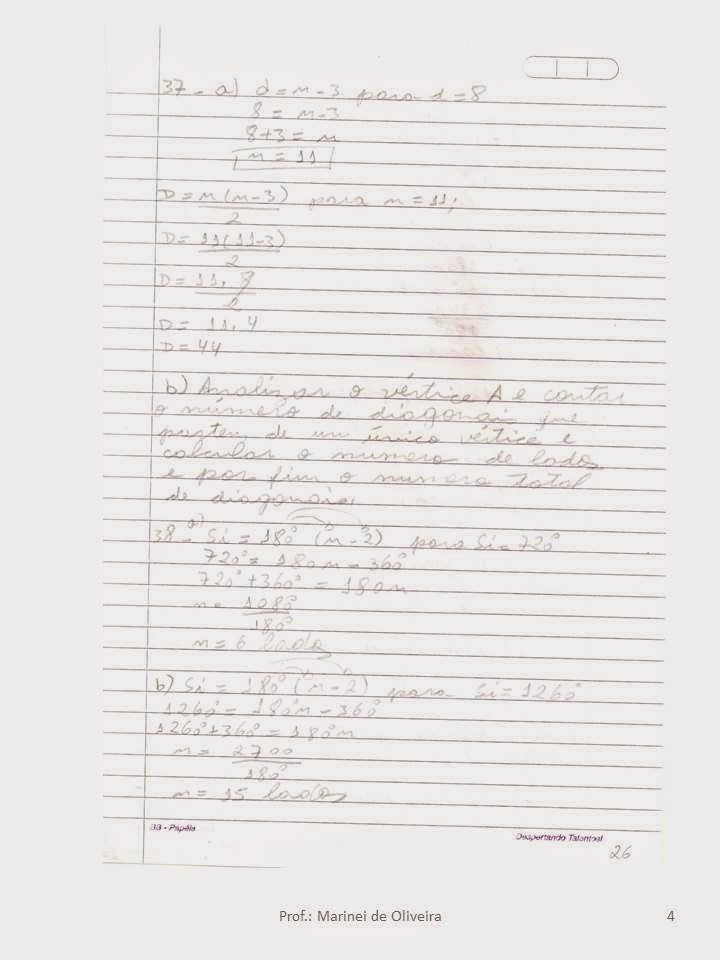 37 - a) d = n - 3 para d = 8
8 = n - 3
8 + 3 = n
n = 11
D = n (n - 3) para n = 11;
2
D = 11 (11 - 3)
2
D = 11 . 8
2
D = 11 . 4
D = 44
b) Analizar o vértice A e contar
o número de diagonai que
partem de um único vértice e
calcular o numero de lados
e por fim o numero total
de diagonais.
38 - a) Si = 180° (n - 2) para Si = 720°
720° = 180n - 360°
720° + 360° = 180n
n = 1080°
180°
n = 6 lados
b) Si = 180° (n - 2) para Si = 1260°
1260° = 180°n - 360°
1260° + 360° = 180°n
n = 2700
180°
n = 15 lados
BB - Papéis
Despertando Talentos!
26
Prof.: Marinei de Oliveira
4